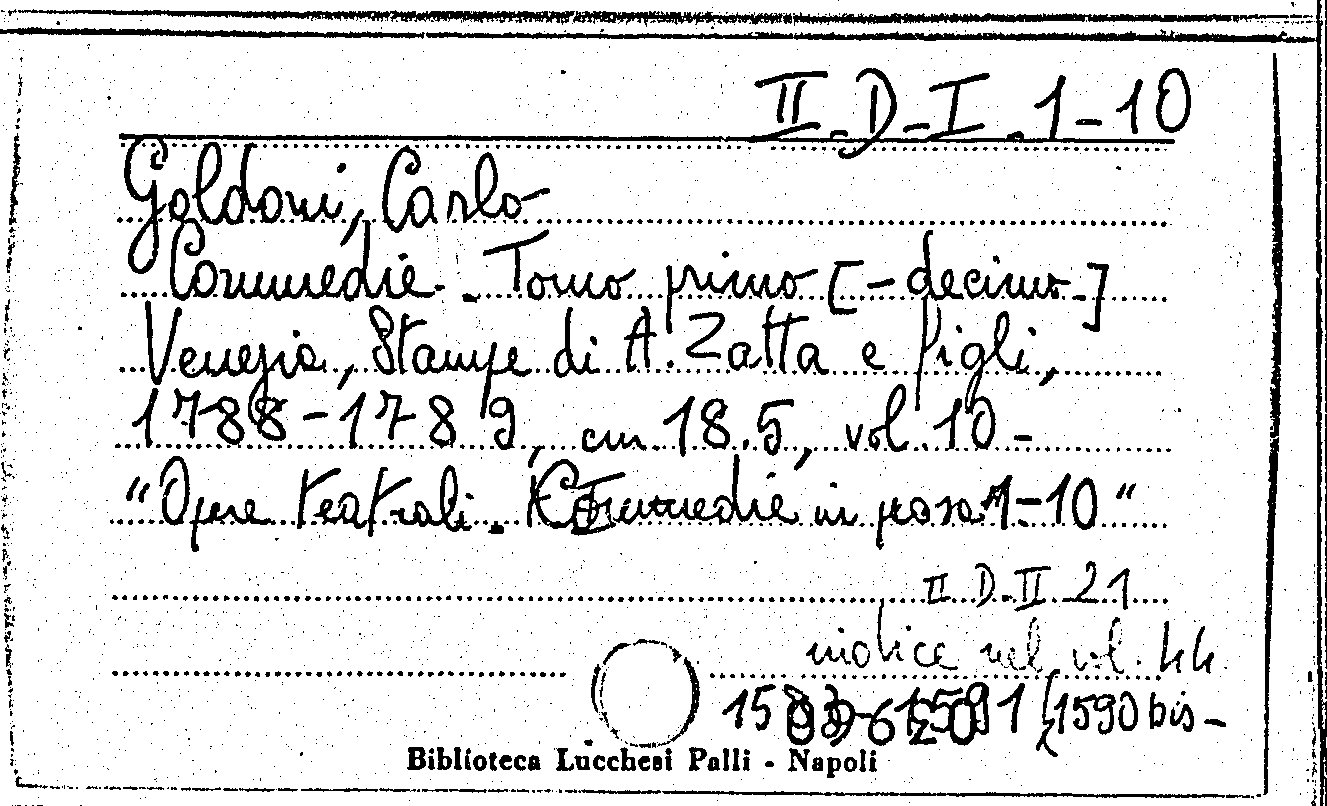 II-D-I.1-10
Goldoni, Carlo
Commedie. Tomo primo [-decimo-]
Venezia, Stampe di A. Zatta e figli,
1788-1789, cm 18.5, vol. 10 -
"Opere teatrali. Commedie in prosa 1-10"
II D-II 21
indice nel vol. 44.
1591 (1590 bis-
Biblioteca Lucchesi Palli - Napoli